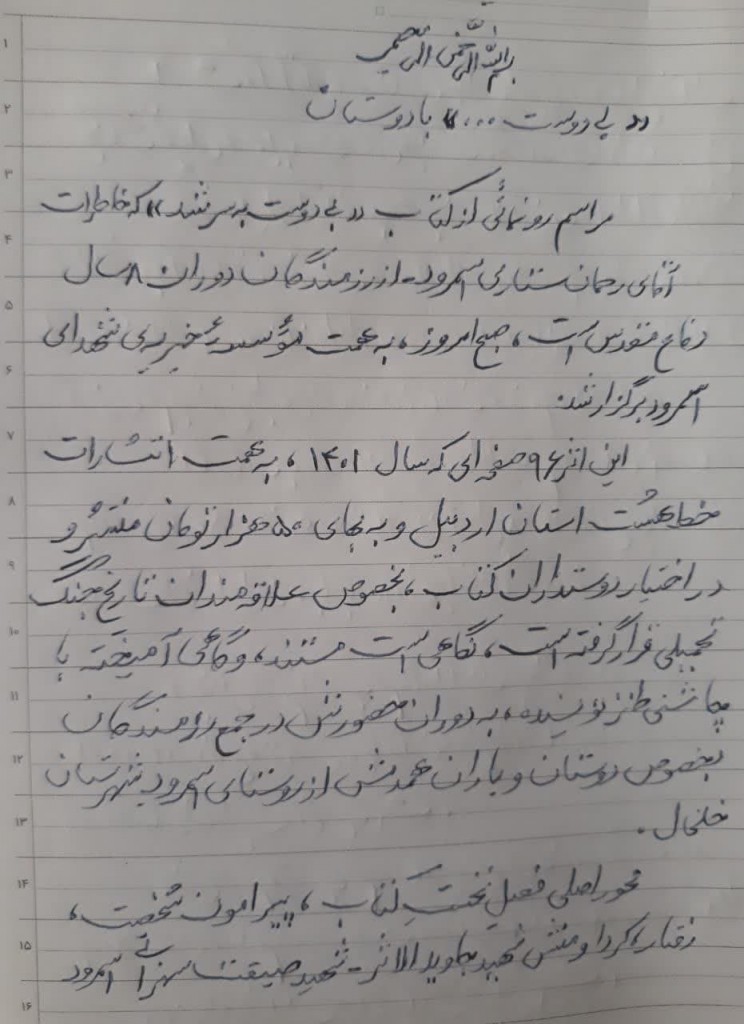 بسم الله الرحمن الرحیم
۱
۲
«بی دوست ...» با دوستان
۳
مراسم رونمائی از کتاب «بی دوست به سر نشد» که خاطرات
۴
آقای رحمان ستاری اسمرود - از رزمندگان دوران ۸ سال
۵
دفاع مقدس است، صبح امروز، به همت مؤسسهٔ خیریه‌ی شهدای
۶
اسمرود برگزار شد.
۷
این اثر ۹۶ صفحه‌ای که سال ۱۴۰۱، به همت انتشارات
۸
خط هشت استان اردبیل و به بهای ۵۰ هزار تومان منتشر و
۹
در اختیار دوستداران کتاب، بخصوص علاقه‌مندان تاریخ جنگ
۱۰
تحمیلی قرار گرفته است، نگاهی است مستند، و گاهی آمیخته با
۱۱
چاشنی طنز نویسنده، به دوران حضورش در جمع رزمندگان
۱۲
بخصوص دوستان و یاران همرزمش از روستای اسمرود شهرستان
۱۳
خلخال.
۱۴
محور اصلی فصل نخست کتاب، پیرامون شخصیت،
۱۵
رفتار، کردار و منش شهید جاوید الاثر - شهید حقیقت سهرابی اسمرود
۱۶